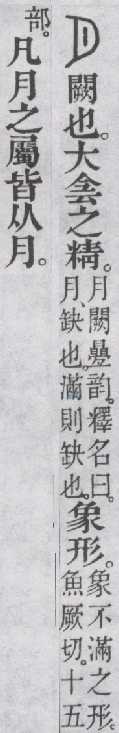 闕也。大侌之精。月闕曡韵。釋名曰。月、缺也。滿則缺也。象形。象不滿之形。魚厥切。十五
部。凡月之屬皆从月。